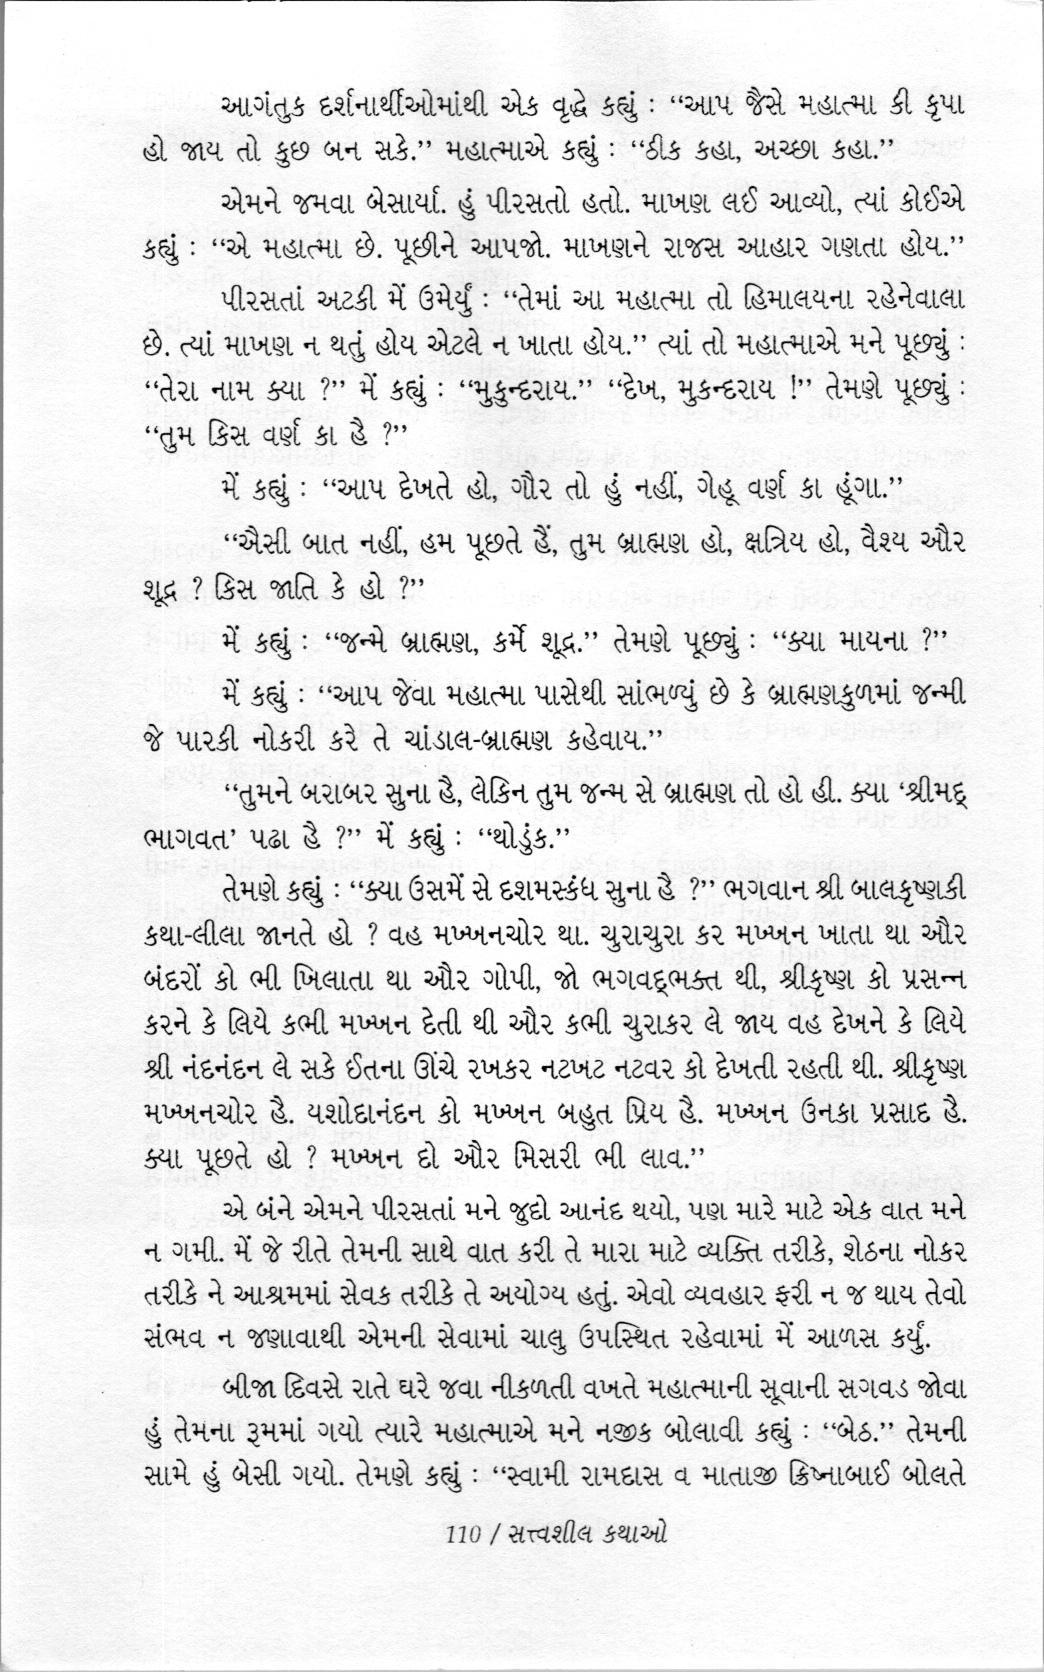 આગંતુક દર્શનાર્થીઓમાંથી એક વૃદ્ધે કહ્યું : ‘‘આપ જૈસે મહાત્મા કી કૃપા
હો જાય તો કુછ બન સકે.’’ મહાત્માએ કહ્યું : ‘‘ઠીક કહા, અચ્છા કહા.’’
એમને જમવા બેસાર્યા. હું પીરસતો હતો. માખણ લઈ આવ્યો, ત્યાં કોઈએ
કહ્યું : ‘‘એ મહાત્મા છે. પૂછીને આપજો. માખણને રાજસ આહાર ગણતા હોય.’’
પીરસતાં અટકી મેં ઉમેર્યું : ‘‘તેમાં આ મહાત્મા તો હિમાલયના રહેનેવાલા
છે. ત્યાં માખણ ન થતું હોય એટલે ન ખાતા હોય.’’ ત્યાં તો મહાત્માએ મને પૂછ્યું :
‘‘તેરા નામ ક્યા ?’’ મેં કહ્યું : ‘‘મુકુન્દરાય.’’ ‘‘દેખ, મુકન્દરાય !’’ તેમણે પૂછ્યું :
‘‘તુમ કિસ વર્ણ કા હૈ ?’’
મેં કહ્યું : ‘‘આપ દેખતે હો, ગૌર તો હું નહીં, ગેહૂ વર્ણ કા હૂંગા.’’
‘‘ઐસી બાત નહીં, હમ પૂછતે હૈં, તુમ બ્રાહ્મણ હો, ક્ષત્રિય હો, વૈશ્ય ઔર
શૂદ્ર ? કિસ જાતિ કે હો ?’’
મેં કહ્યું : ‘‘જન્મે બ્રાહ્મણ, કર્મે શૂદ્ર.’’ તેમણે પૂછ્યું : ‘‘ક્યા માયના ?’’
મેં કહ્યું : ‘‘આપ જેવા મહાત્મા પાસેથી સાંભળ્યું છે કે બ્રાહ્મણકુળમાં જન્મી
જે પારકી નોકરી કરે તે ચાંડાલ-બ્રાહ્મણ કહેવાય.’’
‘‘તુમને બરાબર સુના હૈ, લેકિન તુમ જન્મ સે બ્રાહ્મણ તો હો હી. ક્યા ‘શ્રીમદ્
ભાગવત’ પઢા હૈ ?’’ મેં કહ્યું : ‘‘થોડુંક.’’
તેમણે કહ્યું : ‘‘ક્યા ઉસમેં સે દશમસ્કંધ સુના હૈ ?’’ ભગવાન શ્રી બાલકૃષ્ણકી
કથા-લીલા જાનતે હો ? વહ મખ્ખનચોર થા. ચુરાચુરા કર મખ્ખન ખાતા થા ઔર
બંદરોં કો ભી ખિલાતા થા ઔર ગોપી, જો ભગવદ્ભક્ત થી, શ્રીકૃષ્ણ કો પ્રસન્ન
કરને કે લિયે કભી મખ્ખન દેતી થી ઔર કભી ચુરાકર લે જાય વહ દેખને કે લિયે
શ્રી નંદનંદન લે સકે ઈતના ઊંચે રખકર નટખટ નટવર કો દેખતી રહતી થી. શ્રીકૃષ્ણ
મખ્ખનચોર હૈ. યશોદાનંદન કો મખ્ખન બહુત પ્રિય હૈ. મખ્ખન ઉનકા પ્રસાદ હૈ.
ક્યા પૂછતે હો ? મખ્ખન દો ઔર મિસરી ભી લાવ.’’
એ બંને એમને પીરસતાં મને જુદો આનંદ થયો, પણ મારે માટે એક વાત મને
ન ગમી. મેં જે રીતે તેમની સાથે વાત કરી તે મારા માટે વ્યક્તિ તરીકે, શેઠના નોકર
તરીકે ને આશ્રમમાં સેવક તરીકે તે અયોગ્ય હતું. એવો વ્યવહાર ફરી ન જ થાય તેવો
સંભવ ન જણાવાથી એમની સેવામાં ચાલુ ઉપસ્થિત રહેવામાં મેં આળસ કર્યું.
બીજા દિવસે રાતે ઘરે જવા નીકળતી વખતે મહાત્માની સૂવાની સગવડ જોવા
હું તેમના રૂમમાં ગયો ત્યારે મહાત્માએ મને નજીક બોલાવી કહ્યું : ‘‘બેઠ.’’ તેમની
સામે હું બેસી ગયો. તેમણે કહ્યું : ‘‘સ્વામી રામદાસ વ માતાજી ક્રિષ્નાબાઈ બોલતે
110 / સત્ત્વશીલ કથાઓ